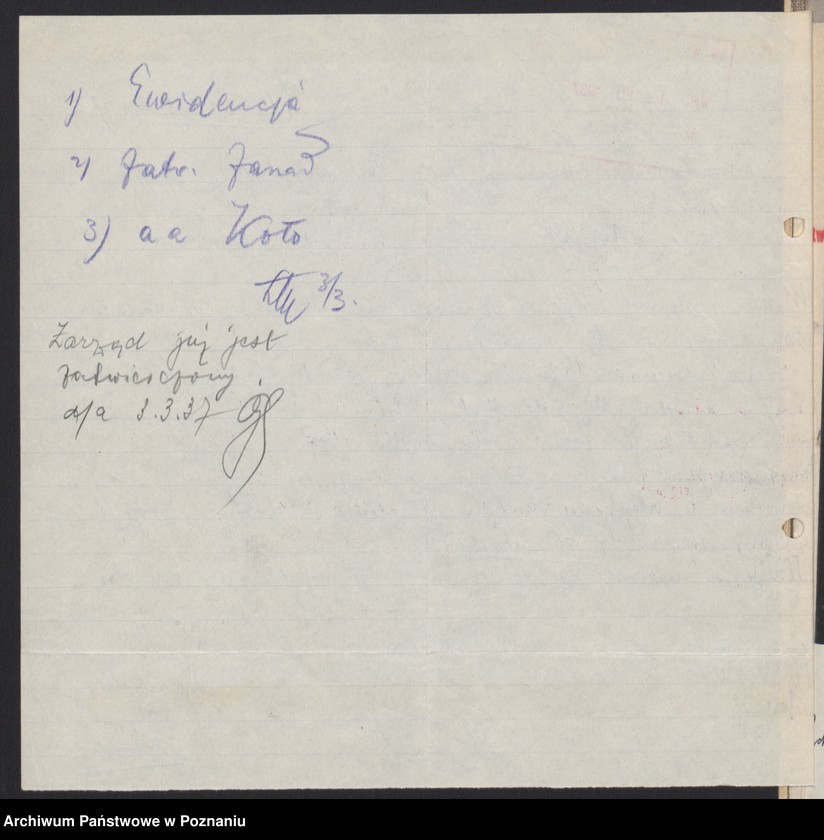 1) Ewidencja
2) Zatw. Zarząd
3) a a Koło
3/3.
Zarząd już jest
zatwierdzony.
a/a 3.3.37
Archiwum Państwowe w Poznaniu